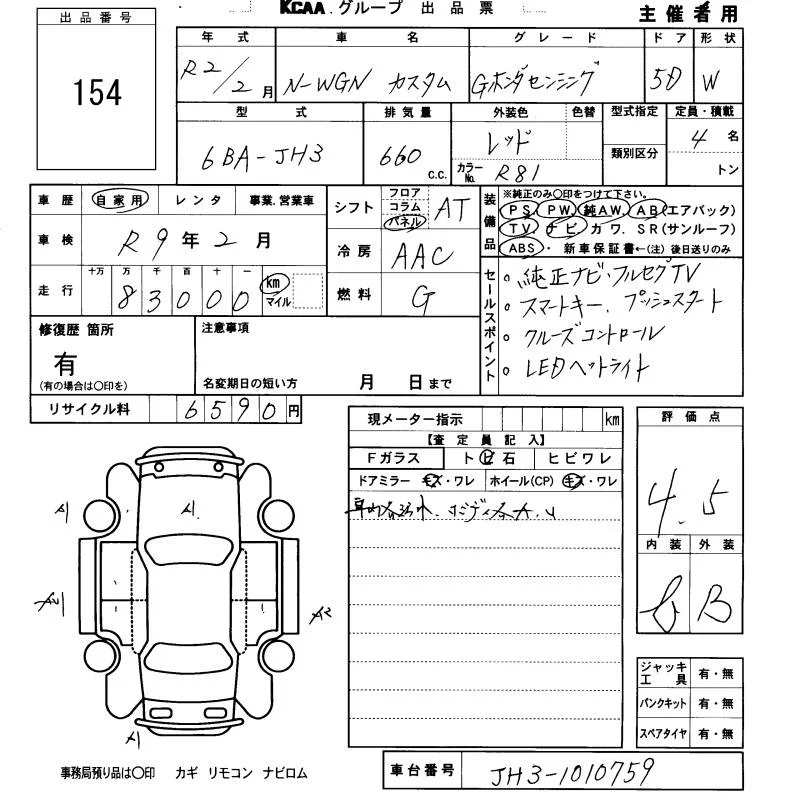 KCAA.グループ 出品票
主催者用
出品番号
154
年式 車名 グレード ドア 形状
R2/2月 N-WGN カスタム Gホンダセンシング 5D W
型式 排気量 外装色 色替 型式指定 定員・積載
6BA-JH3 660 c.c. レッド 類別区分 4名
カラーNo. R81 トン
車歴 自家用 レンタ 事業.営業車
車検 R9年2月
走行 十万 万 千 百 十 一
83000 km マイル
シフト フロア コラム パネル AT
冷房 AAC
燃料 G
装備品
※純正のみ○印をつけて下さい。
PS PW. 純AW. AB(エアバック)
TV. ナビ カワ. SR(サンルーフ)
ABS・ 新車保証書←(注) 後日送りのみ
セールスポイント
○ 純正ナビ・フルセグTV
○ スマートキー. プッシュスタート
○ クルーズコントロール
○ LEDヘットライト
修復歴 箇所
有
(有の場合は○印を)
注意事項
名変期日の短い方 月 日まで
リサイクル料 6590円
現メーター指示 km
【査定員記入】
Fガラス トビ石 ヒビワレ
ドアミラー キズ・ワレ ホイール(CP) キズ・ワレ
評価点
4.5
内装 外装
B
A1
A1.
A2
A1
ジャッキ工具 有・無
パンクキット 有・無
スペアタイヤ 有・無
事務局預り品は○印 カギ リモコン ナビロム
車台番号 JH3-1010759